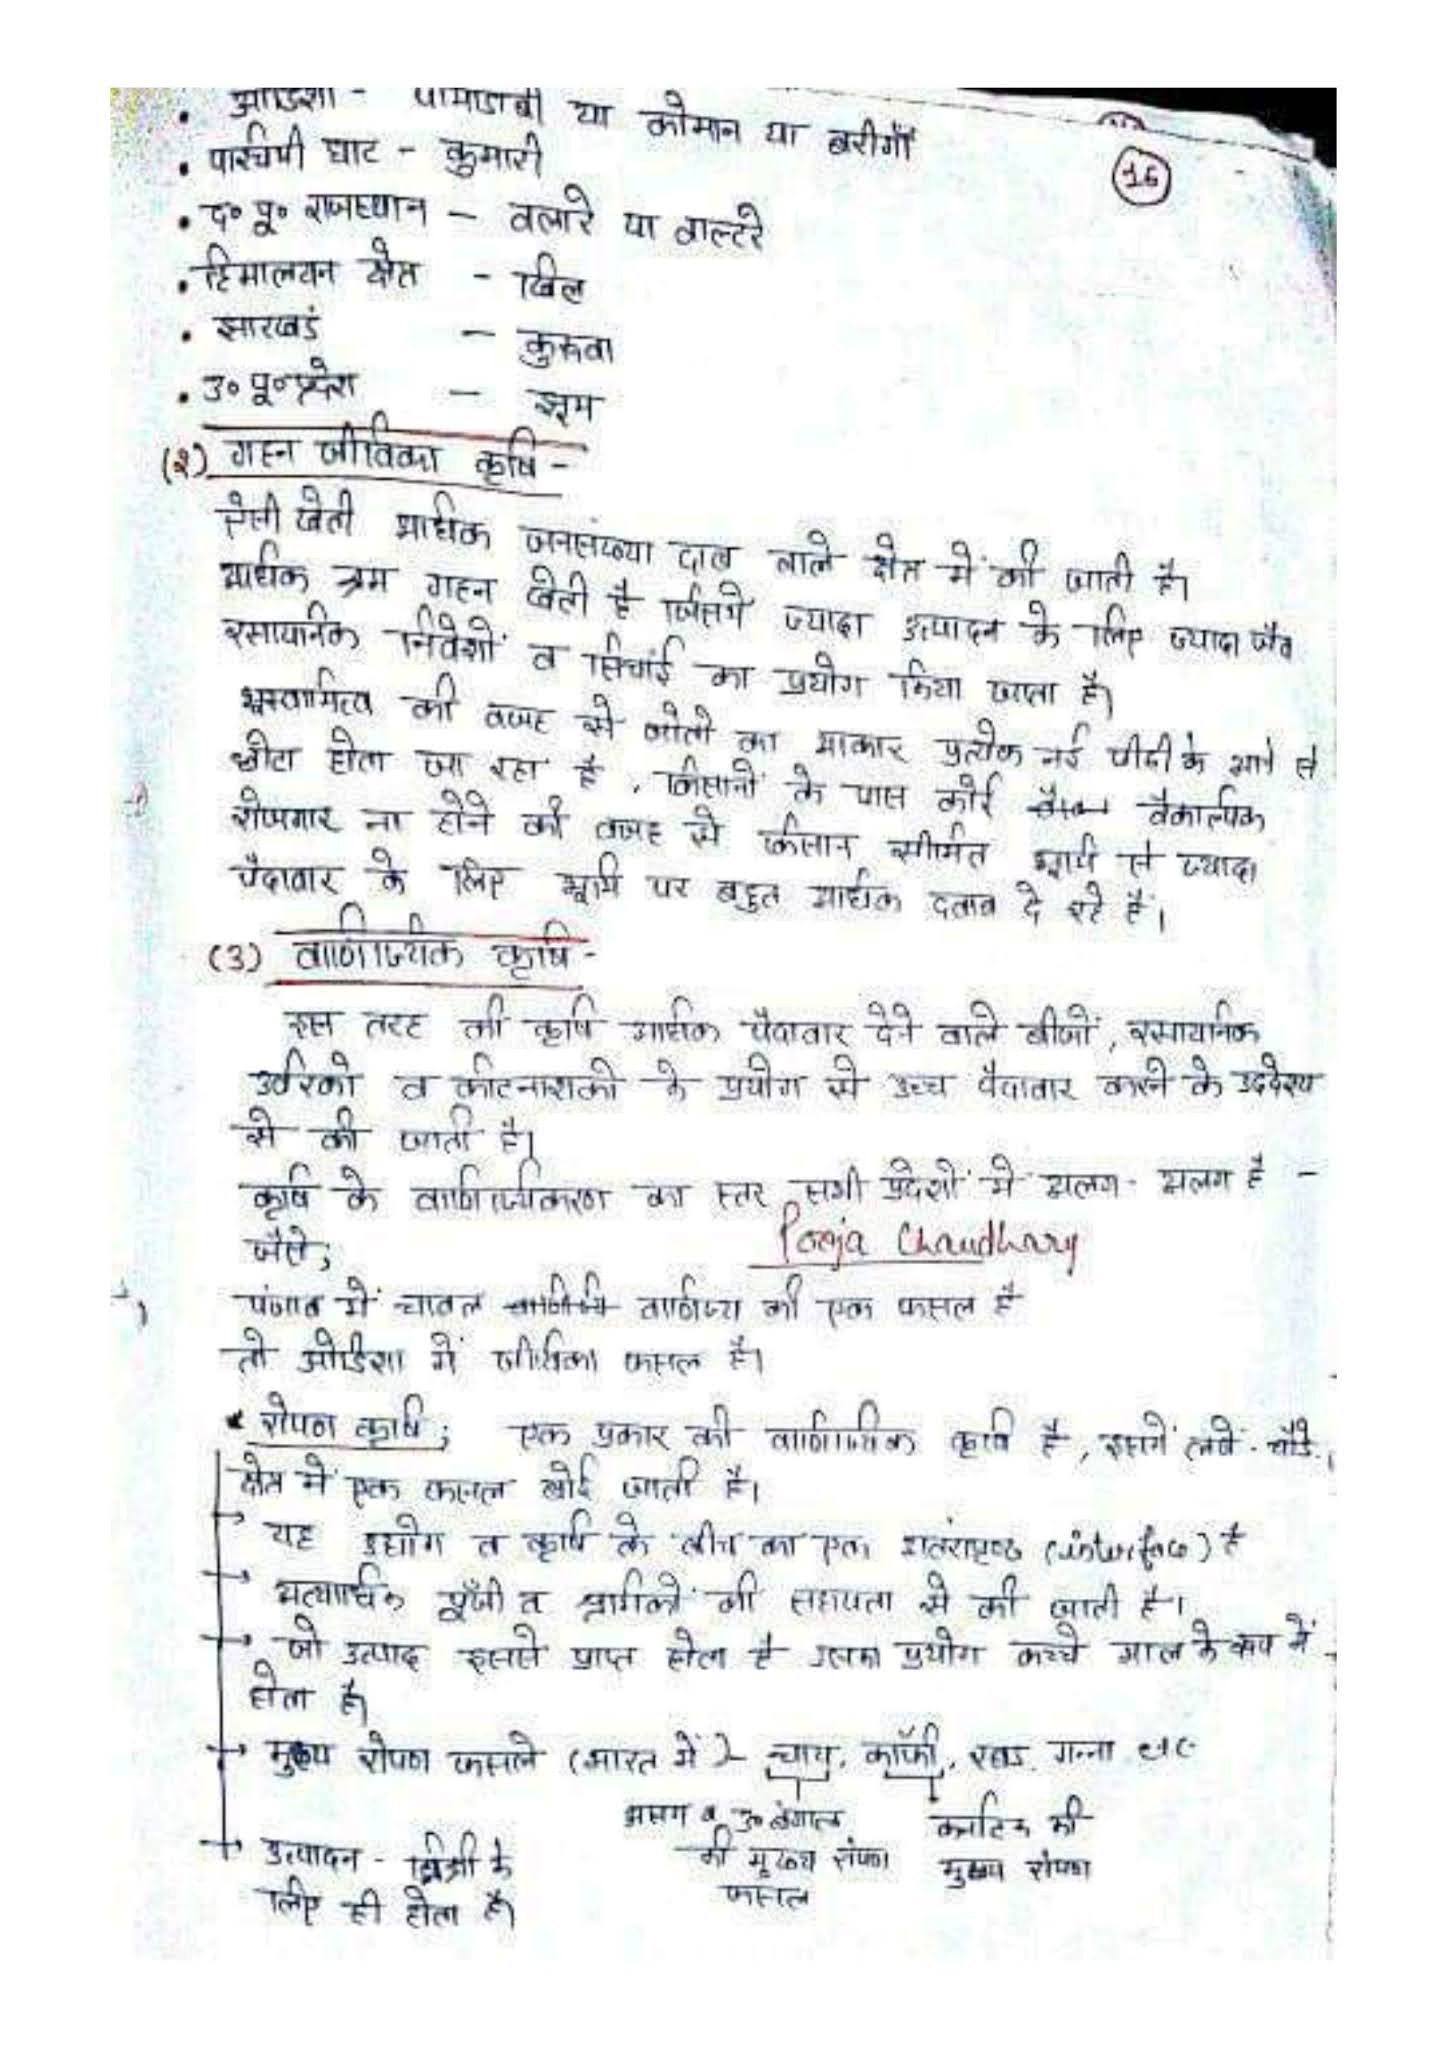 • ओडिशा - पामाडाबी या कोमान या बरीगाँ
(16)
• पश्चिमी घाट - कुमारी
• द॰ पू॰ राजस्थान - वलारे या वाल्टरे
• हिमालयन क्षेत्र - खिल
• झारखडं - कुरुवा
• उ॰ पू॰ प्रदेश - झूम
(२) गहन जीविका कृषि -
ऐसी खेती अधिक जनसंख्या दाब वाले क्षेत्र में की जाती है।
अधिक श्रम गहन खेती है जिसमें ज्यादा उत्पादन के लिए ज्यादा जैव
रसायनिक निवेशों व सिचांई का प्रयोग किया जाता है।
भूस्वामित्व की वजह से जोतो का आकार प्रत्येक नई पीढी के आने से
छोटा होता जा रहा है, किसानों के पास कोई वैकल्पिक
रोजगार ना होने की वजह से किसान सीमित भूमि से ज्यादा
पैदावार के लिए भूमि पर बहुत अधिक दवाब दे रहे हैं।
(3) वाणिज्यिक कृषि -
इस तरह की कृषि अधिक पैदावार देने वाले बीजों, रसायनिक
उर्वरको व कीटनाशको के प्रयोग से उच्च पैदावार करने के उददेश्य
से की जाती है।
कृषि के वाणिज्यिकरण का स्तर सभी प्रदेशों में अलग - अलग है -
जैसे; Pooja Chaudhary
पंजाब में चावल वाणिज्य की एक फसल है
तो ओडिशा में जीविका फसल है।
* रोपण कृषि; एक प्रकार की वाणिज्यिक कृषि है, इसमें लंबे - चौडे
क्षेत्र में एक फसल बोई जाती है।
→ यह उद्योग व कृषि के बीच का एक अतंरापृष्ठ (interface) है
→ अत्याधिक पूँजी व श्रमिकों की सहायता से की जाती है।
→ जो उत्पाद इससे प्राप्त होता है उसका प्रयोग कच्चे माल के रूप में
होता है।
→ मुख्य रोपण फसले (भारत में) - चाय, कॉफी, रबड, गन्ना etc
असम व उ॰ बंगाल की मुख्य रोपण फसल
कर्नाटक की मुख्य रोपण
→ उत्पादन - बिक्री के
लिए ही होता है।